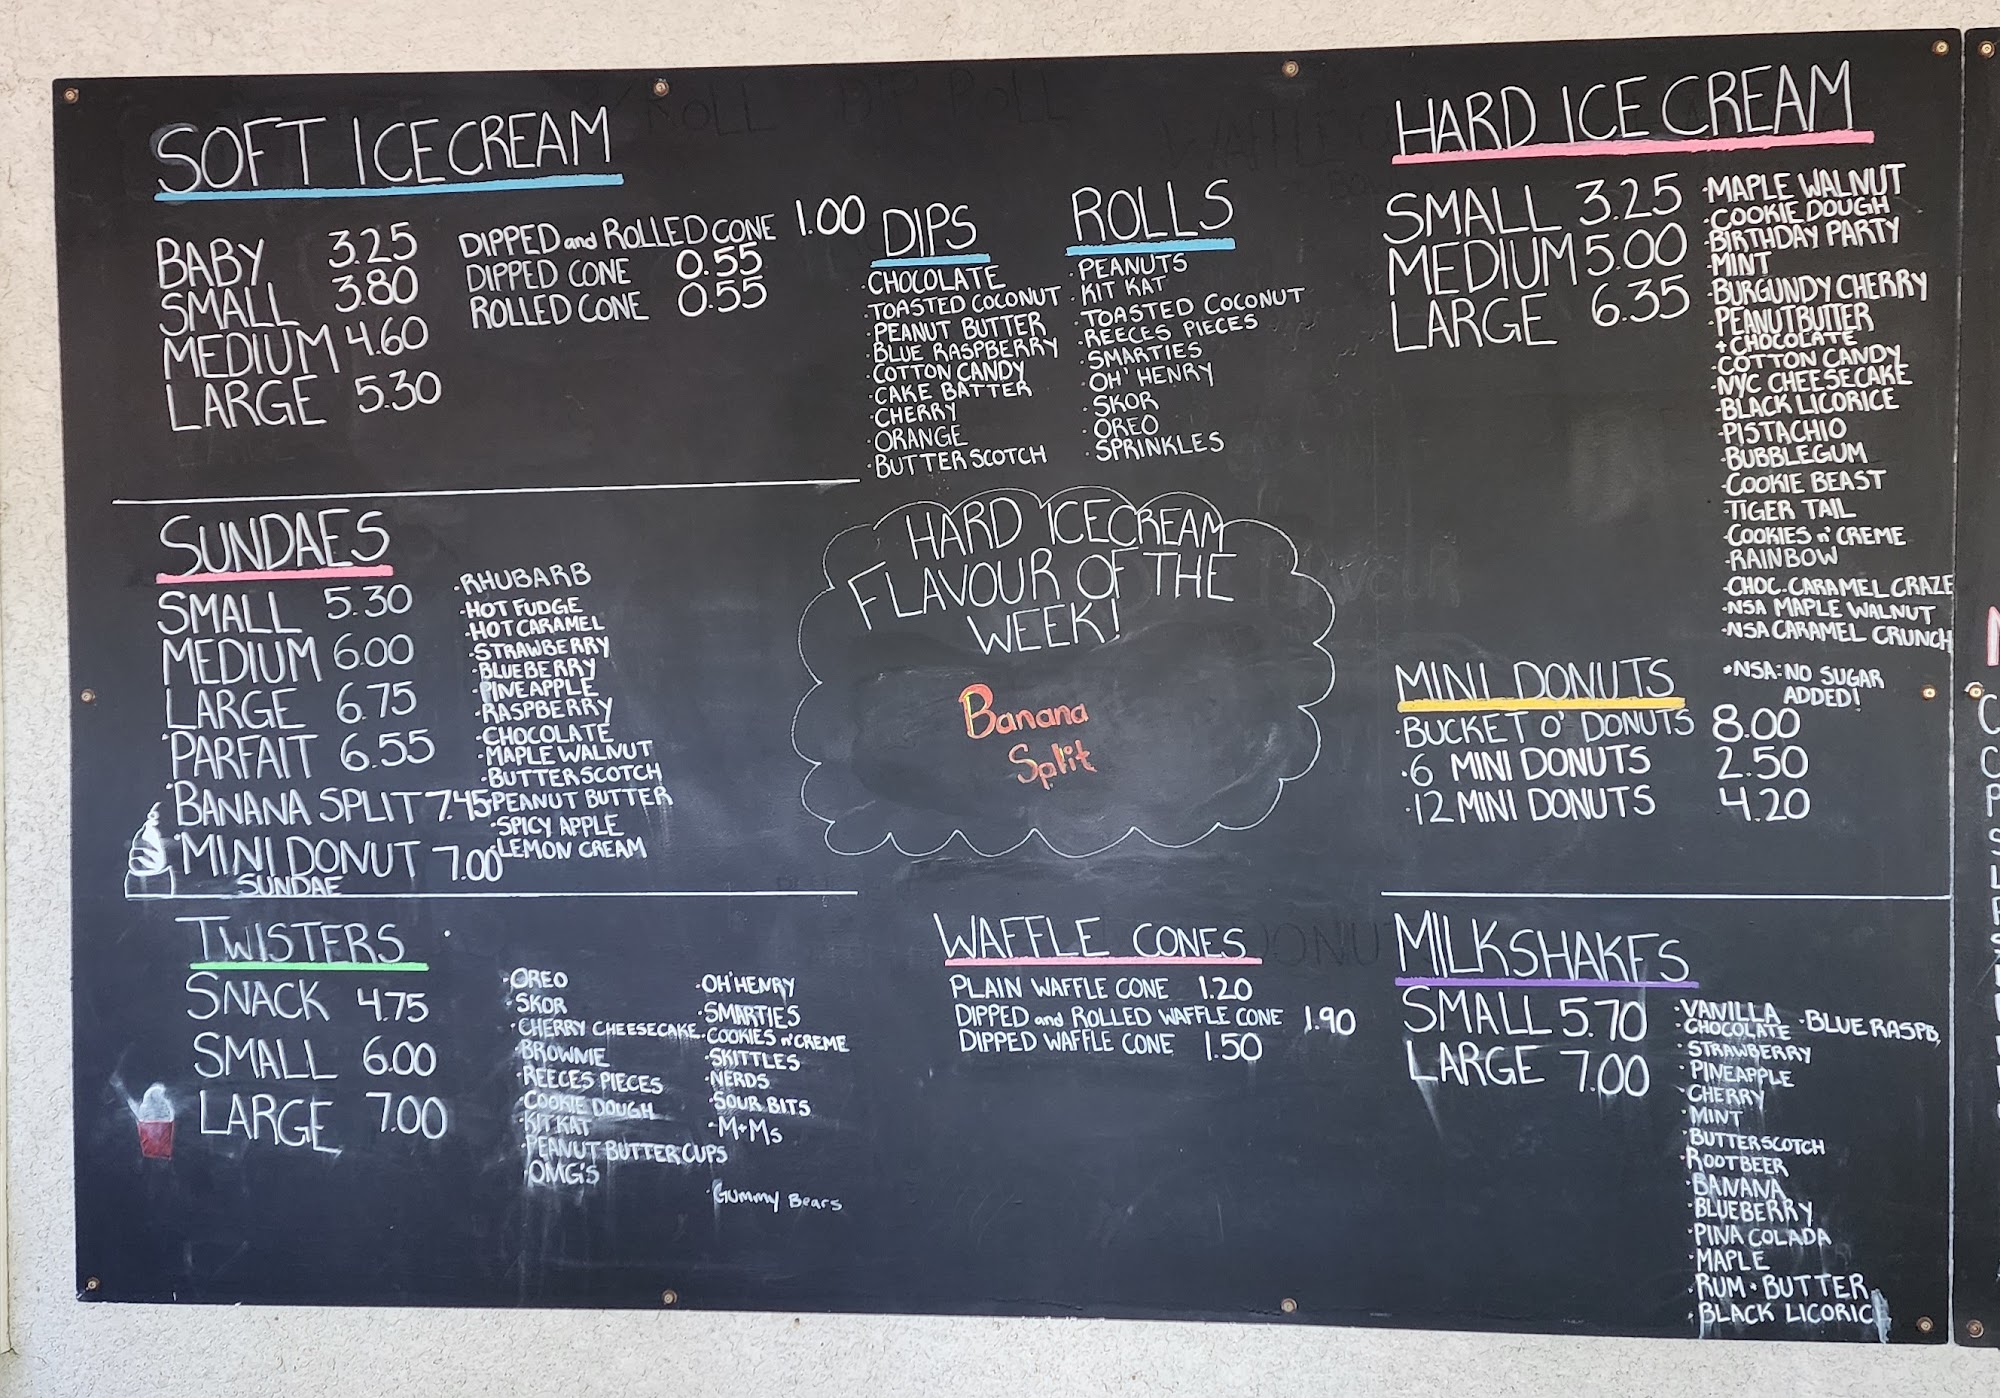 SOFT ICE CREAM
BABY 3.25
SMALL 3.80
MEDIUM 4.60
LARGE 5.30
DIPPED and ROLLED CONE 1.00
DIPPED CONE 0.55
ROLLED CONE 0.55
DIPS
·CHOCOLATE
·TOASTED COCONUT
·PEANUT BUTTER
·BLUE RASPBERRY
·COTTON CANDY
·CAKE BATTER
·CHERRY
·ORANGE
·BUTTERSCOTCH
ROLLS
·PEANUTS
·KIT KAT
·TOASTED COCONUT
·REECES PIECES
·SMARTIES
·OH' HENRY
·SKOR
·OREO
·SPRINKLES
HARD ICE CREAM
SMALL 3.25
MEDIUM 5.00
LARGE 6.35
·MAPLE WALNUT
·COOKIE DOUGH
·BIRTHDAY PARTY
·MINT
·BURGUNDY CHERRY
·PEANUTBUTTER
+ CHOCOLATE
·COTTON CANDY
·NYC CHEESECAKE
·BLACK LICORICE
·PISTACHIO
·BUBBLEGUM
·COOKIE BEAST
·TIGER TAIL
·COOKIES n' CREME
·RAINBOW
·CHOC. CARAMEL CRAZE
·NSA MAPLE WALNUT
·NSA CARAMEL CRUNCH
*NSA: NO SUGAR
ADDED!
SUNDAES
SMALL 5.30
MEDIUM 6.00
LARGE 6.75
PARFAIT 6.55
BANANA SPLIT 7.45
MINI DONUT 7.00
SUNDAE
·RHUBARB
·HOT FUDGE
·HOT CARAMEL
·STRAWBERRY
·BLUEBERRY
·PINEAPPLE
·RASPBERRY
·CHOCOLATE
·MAPLE WALNUT
·BUTTERSCOTCH
·PEANUT BUTTER
·SPICY APPLE
·LEMON CREAM
HARD ICE CREAM
FLAVOUR OF THE
WEEK!
Banana
Split
MINI DONUTS
·BUCKET O' DONUTS 8.00
·6 MINI DONUTS 2.50
·12 MINI DONUTS 4.20
TWISTERS
SNACK 4.75
SMALL 6.00
LARGE 7.00
·OREO
·SKOR
·CHERRY CHEESECAKE
·BROWNIE
·REECES PIECES
·COOKIE DOUGH
·KIT KAT
·PEANUT BUTTER CUPS
·OMG'S
·OH'HENRY
·SMARTIES
·COOKIES n' CREME
·SKITTLES
·NERDS
·SOUR BITS
·M+Ms
·Gummy Bears
WAFFLE CONES
PLAIN WAFFLE CONE 1.20
DIPPED and ROLLED WAFFLE CONE 1.90
DIPPED WAFFLE CONE 1.50
MILKSHAKES
SMALL 5.70
LARGE 7.00
·VANILLA
·CHOCOLATE
·STRAWBERRY
·PINEAPPLE
·CHERRY
·MINT
·BUTTERSCOTCH
·ROOTBEER
·BANANA
·BLUEBERRY
·PINA COLADA
·MAPLE
·RUM + BUTTER
·BLACK LICORIC
·BLUE RASPB.